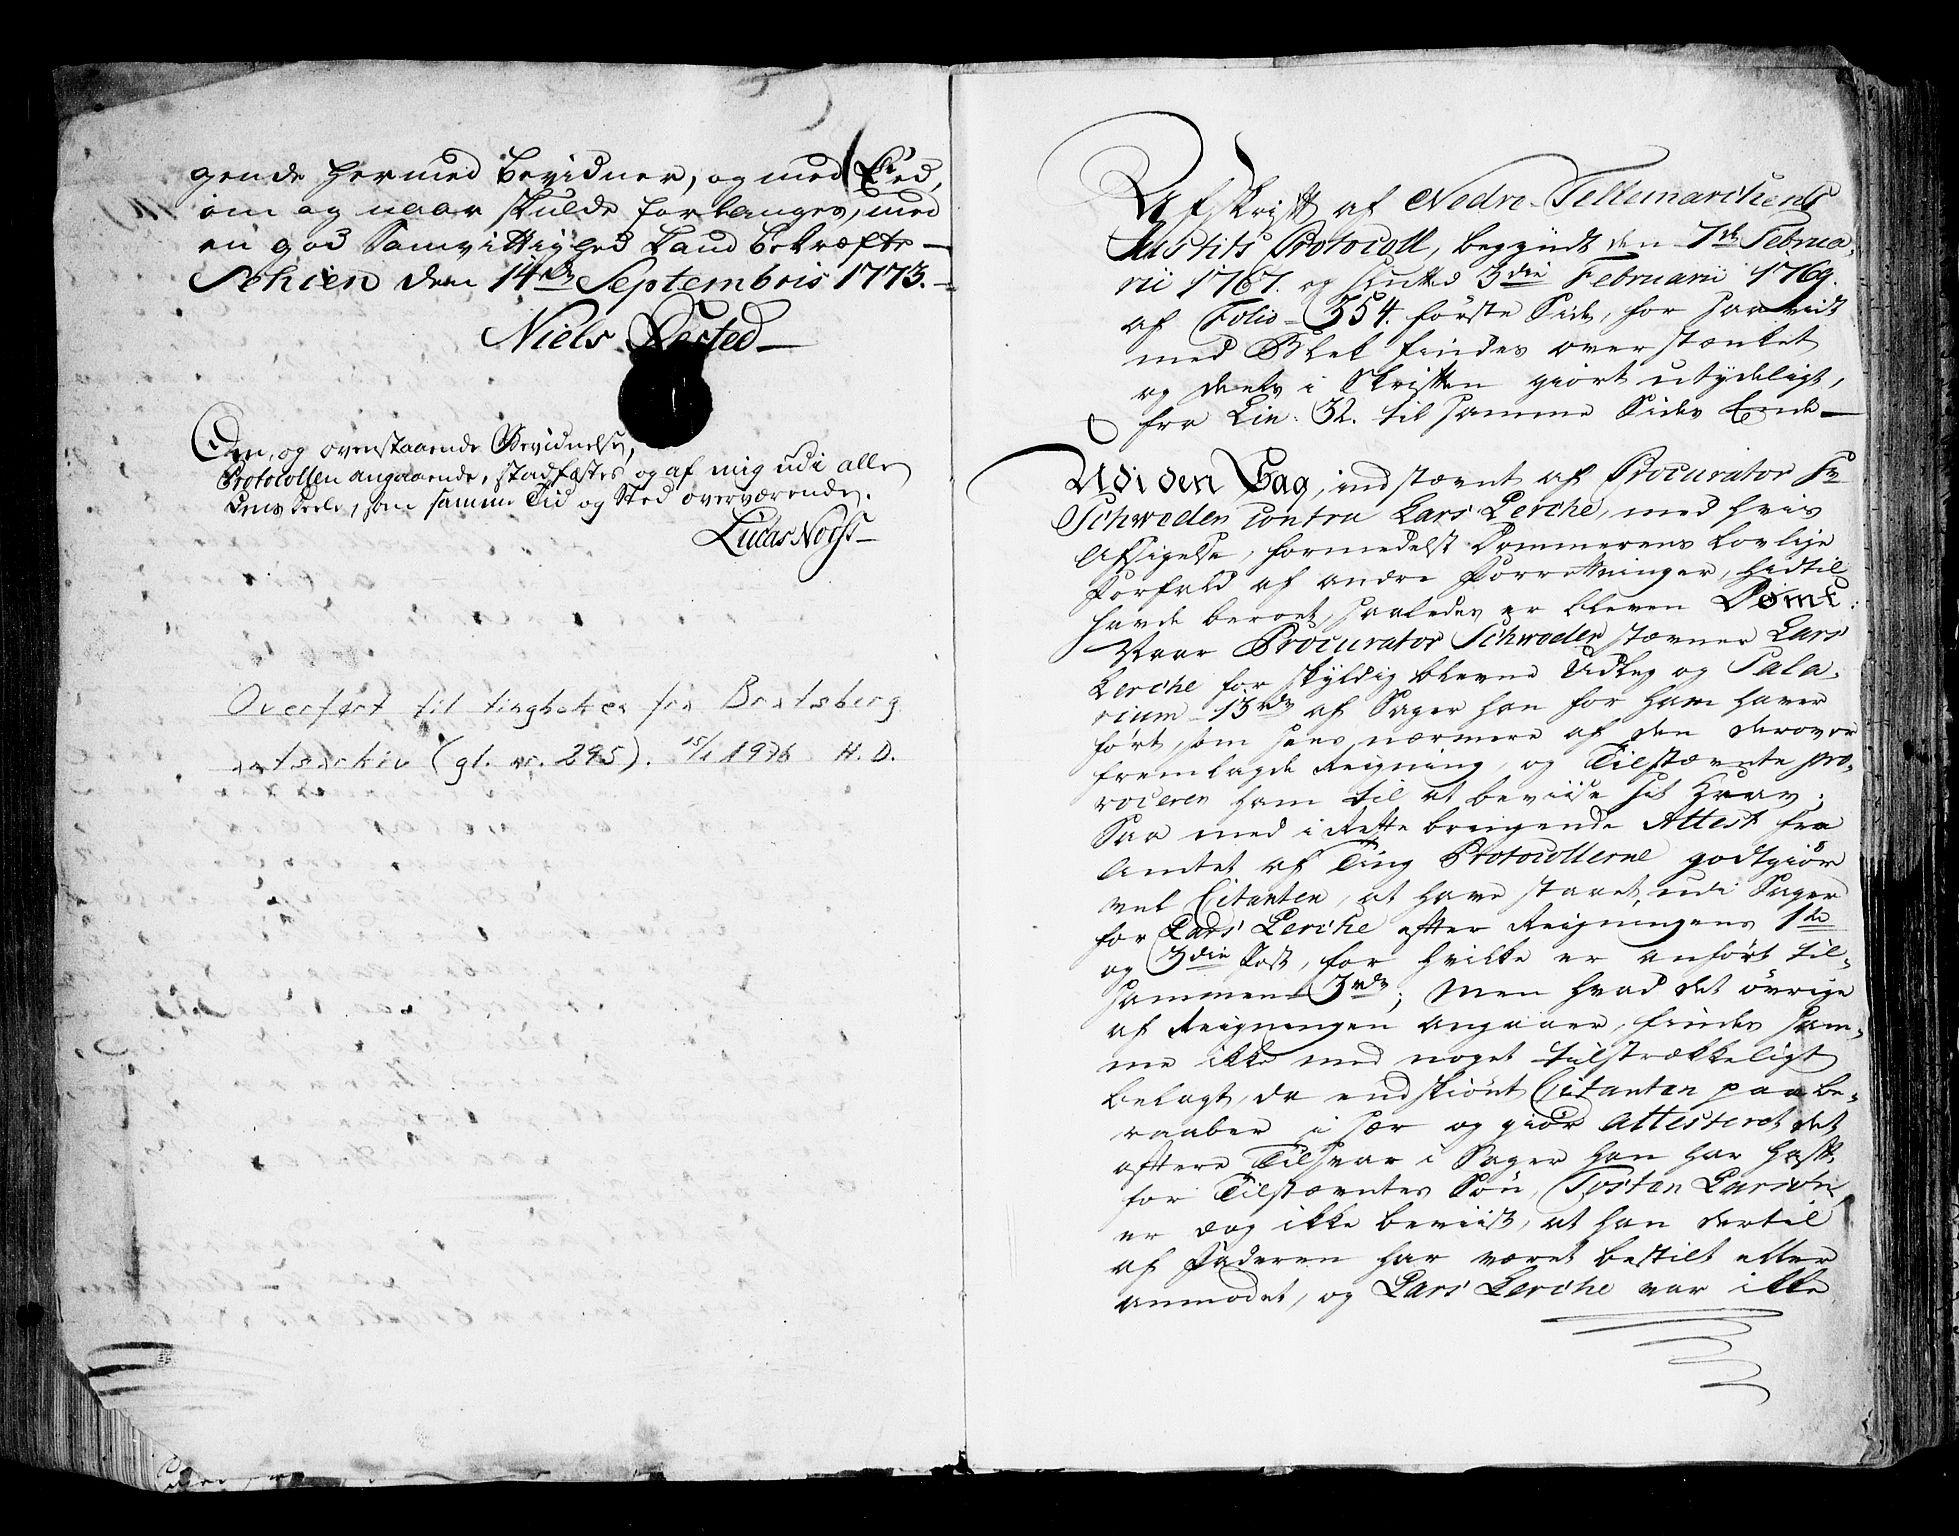 gende hermed bevidner, og med Eed,
om og naar skulde forlanges, med
en god Samvittighed kand bekræfte —
Schien den 14de Septembris 1773. —
Niels Ørsted —
Den, og ovenstaaende Bevidnelse,
Protocollen angaaende, stadfæstes og af mig udi alle
dens Deele, som samme Tid og Sted overværende.
Lucas
Overført til tingbøker fra Bratsberg
amtsarkiv (gl. nr. 295). 15/1 1976 H. D.
Afskrift af Nedre Tellemarchens
Justits Protocoll, begyndt den 7de Februa-
rii 1767. og sluttet 3die Februarii 1769.
af Folio 354. første Side, for saavidt
med Blek findes overstænket
og deels i Skriften giort utydeligt,
fra Lin: 32. til samme Sides Ende —
Udi den Sag, indstævnt af Procurator Sr
Schweder contra Lars Lerche, med hvis
Afsigelse, formedelst Dommerens lovlige
Forfald af andre Forretninger, hidtil
havde beroet, saaledes er bleven Dømt:
Naar Procurator Schweder stævner Lars
Lerche for skyldig blevne Udlæg og Sala-
rium 13rdr af Sager han for ham haver
ført, som sees nærmere af den derover
fremlagde Reigning, og Tilstævnte pro-
vocerer ham til at beviise sit Krav;
Saa med i Rette bringende Attest fra
Amtet af Ting Protocollerne godtgiør
vel Citanten, at have staaet udi Sager
for Lars Lerche efter Reigningens 1te
og 3die Post, for hvilke er anført til-
sammen 3rdr; Men hvad det øvrige
af Reigningen angaaer, findes sam-
me ikke med noget tilstrækkeligt
belagt, da endskiønt Citanten paabe-
raaber i sær og giør attesteret det
efter Tilsvar i Sager han har havt
for Tilstævntes Søn, Tosten Larson,
er dog ikke beviist, at han dertil
af Faderen har været bestilt eller
anmodet, og Lars Lerche var ikke